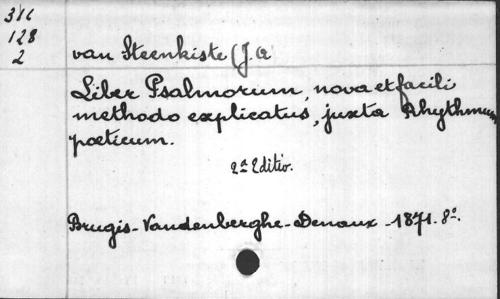 316
128
2
van Steenkiste (J. a
Liber Psalmorum, nova et facili
methodo explicatus, juxta Rhythmum
poeticum.
2a Editio.
Brugis-Vandenberghe-Denaux-1871. 8o.